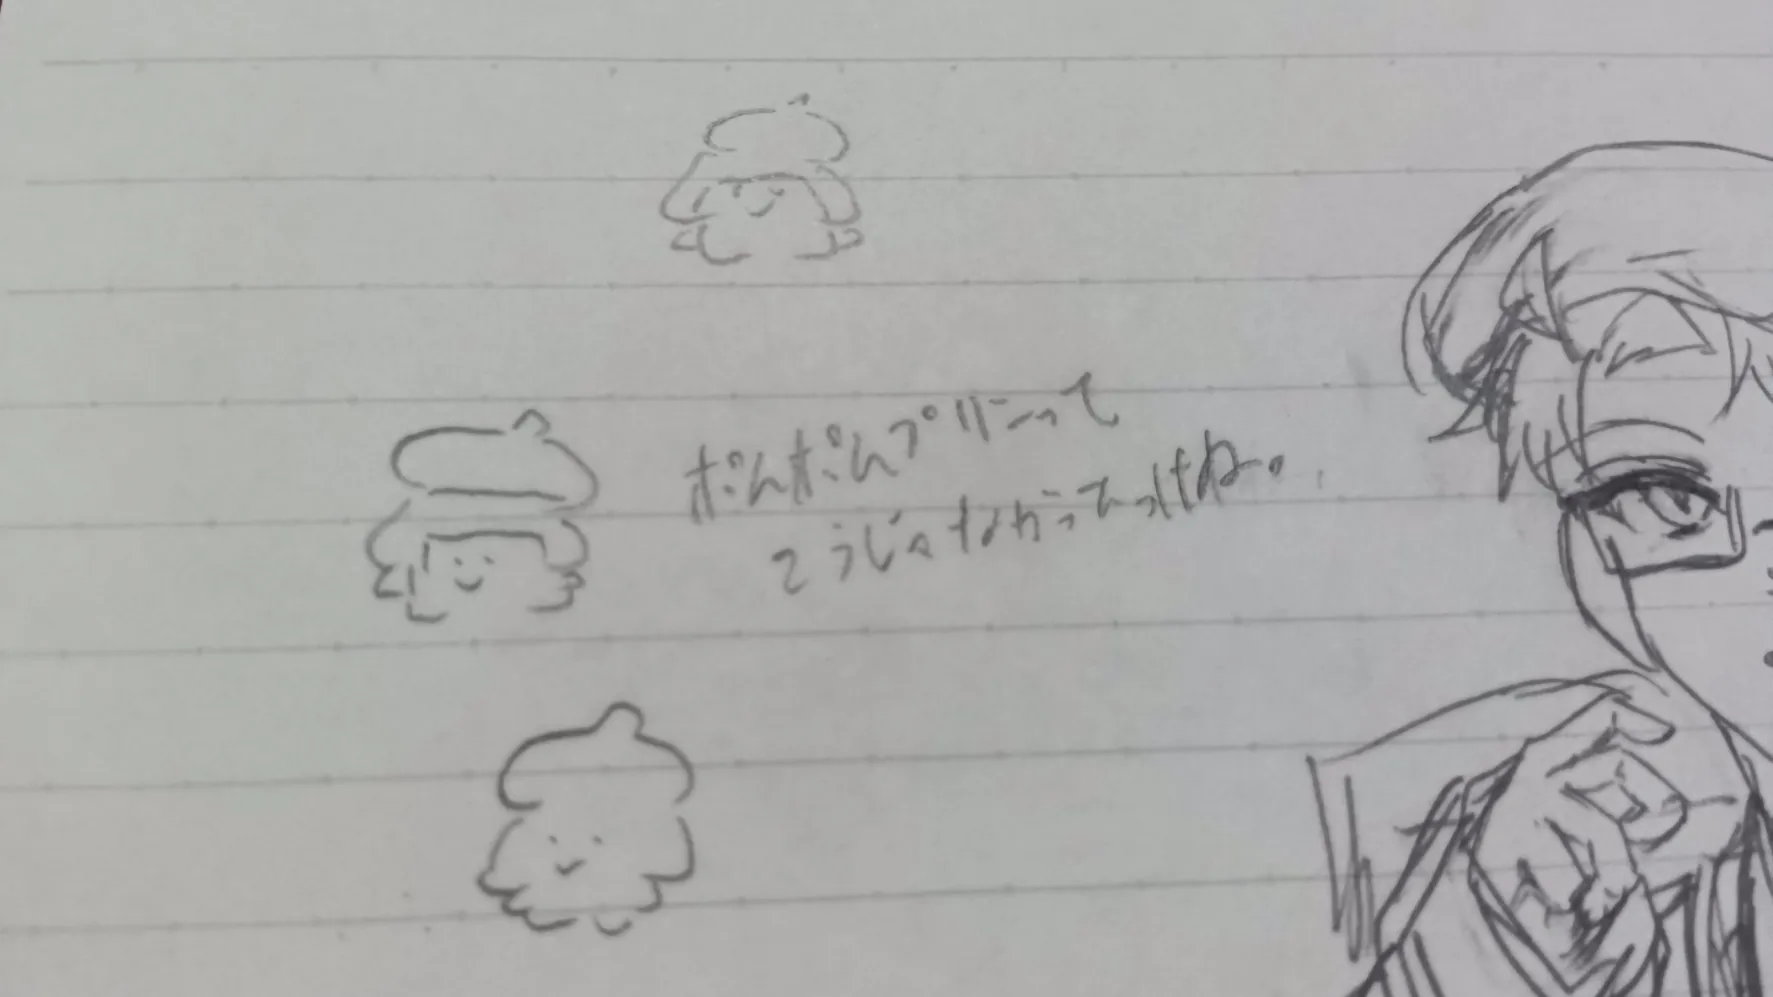 ポんポんプリンって
こうじゃなかったっけね。